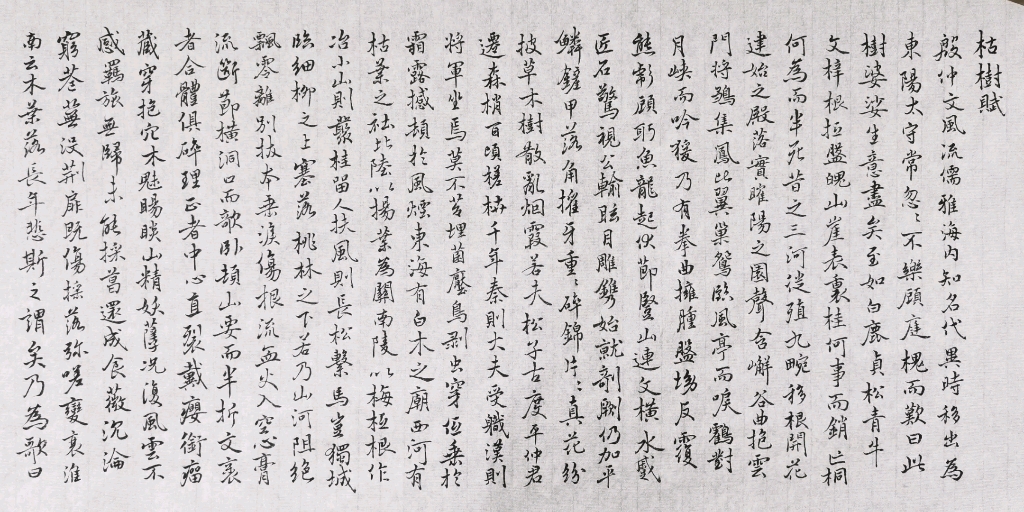 枯樹賦
殷仲文風流儒雅海內知名代異時移出為
東陽太守常忽々不樂顧庭槐而歎曰此
樹婆娑生意盡矣至如白鹿貞松青牛
文梓根抵盤魄山崖表裏桂何事而銷亡桐
何為而半死昔之三河徙殖九畹移根開花
建始之殿落實睢陽之園聲含嶰谷曲抱雲
門將鶵集鳳比翼巢鴛臨風亭而唳鶴對
月峽而吟猨乃有拳曲擁腫盤坳反覆
熊彪顧盼魚龍起伏節豎山連文橫水蹙
匠石驚視公輸眩目雕鐫始就剞劂仍加平
鱗鏟甲落角摧牙重々碎錦片々真花紛
披草木樹散亂烟霞若夫松子古度平仲君
遷森梢百頃槎枿千年秦則大夫受職漢則
將軍坐焉莫不苔埋菌壓鳥剥虫穿低垂於
霜露撼頓於風煙東海有白木之廟西河有
枯葉之社北陸以楊葉為關南陵以梅根作
冶小山則叢桂留人扶風則長松繫馬豈獨城
臨細柳之上塞落桃林之下若乃山河阻絕
飄零離別拔本垂淚傷根流血火入空心膏
流斷節橫洞口而欹卧頓山要而半折文袤
者合體俱碎理正者中心直裂戴癭銜瘤
藏穿抱穴木魅睗睒山精妖孽况復風雲不
感羈旅無歸未能採葛還成食薇沉淪
窮巷蕪沒荊扉既傷搖落弥嗟變衰淮
南云木葉落長年悲斯之謂矣乃為歌曰